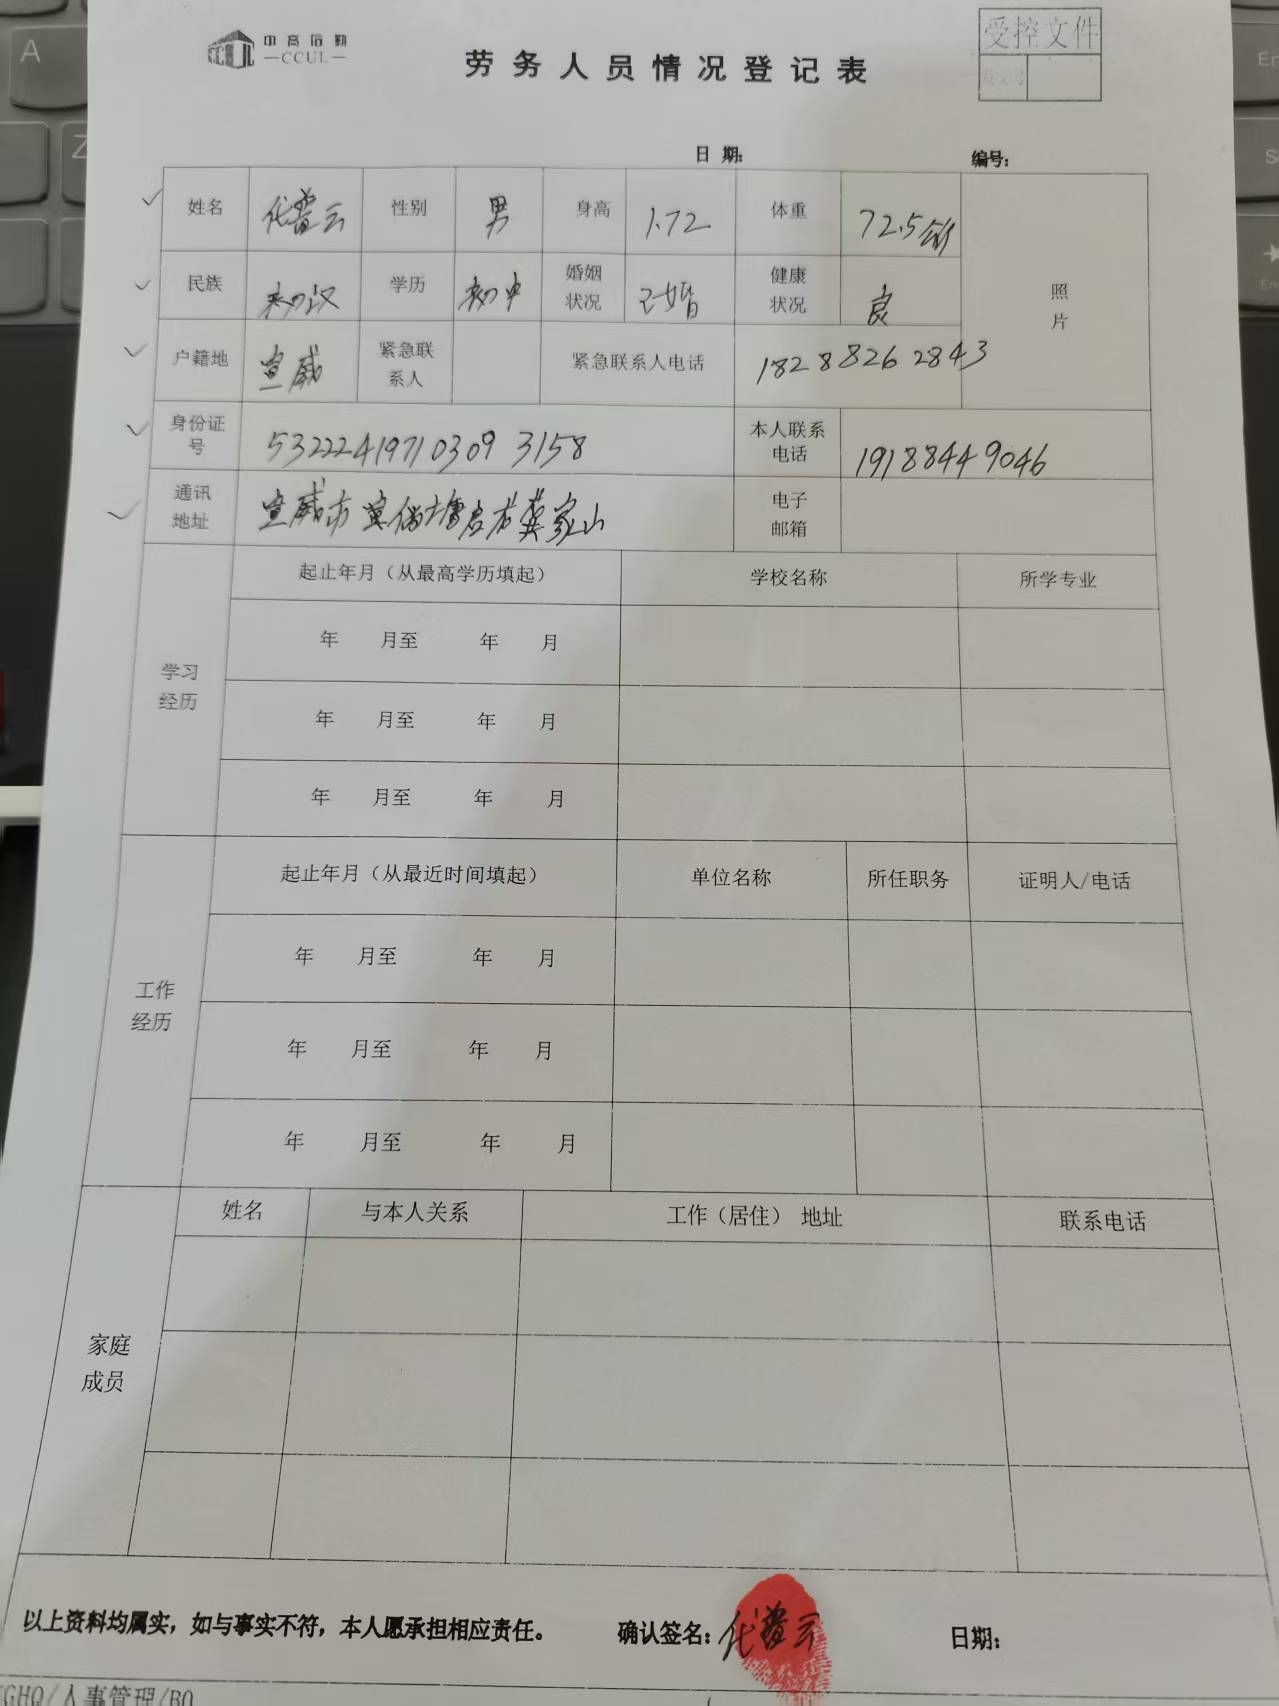 中高后勤
CCUL
劳务人员情况登记表
受控文件
日期:
编号:
姓名 代普云 性别 男 身高 1.72 体重 72.5
民族 汉 学历 初中 婚姻状况 已婚 健康状况 良
照片
户籍地 宣威 紧急联系人 紧急联系人电话 18288262843
身份证号 532224197103093158 本人联系电话 19188449046
通讯地址 宣威市 龚家山 电子邮箱
学习经历
起止年月（从最高学历填起） 学校名称 所学专业
年 月至 年 月
年 月至 年 月
年 月至 年 月
工作经历
起止年月（从最近时间填起） 单位名称 所任职务 证明人/电话
年 月至 年 月
年 月至 年 月
年 月至 年 月
家庭成员
姓名 与本人关系 工作（居住） 地址 联系电话
以上资料均属实，如与事实不符，本人愿承担相应责任。 确认签名: 代普云 日期:
GHQ/人事管理/B0
A
Z